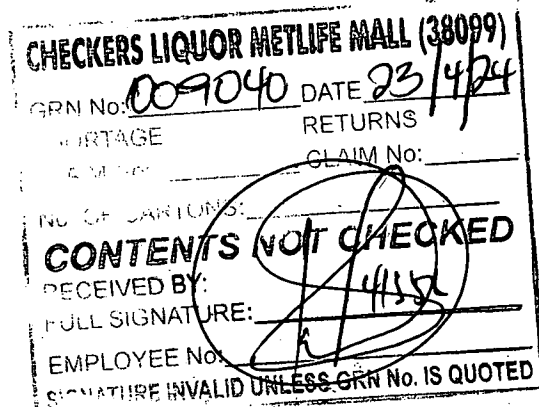 CHECKERS LIQUOR METLIFE MALL (38099)
GRN No: 009040 DATE 23/4/24
RETURNS
CLAIM No:
CONTENTS NOT CHECKED
RECEIVED BY:
FULL SIGNATURE:
EMPLOYEE No:
SIGNATURE INVALID UNLESS GRN No. IS QUOTED